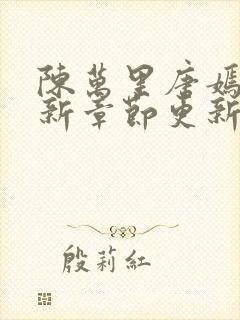 陳萬里唐嫣
新章節更新
殷莉紅